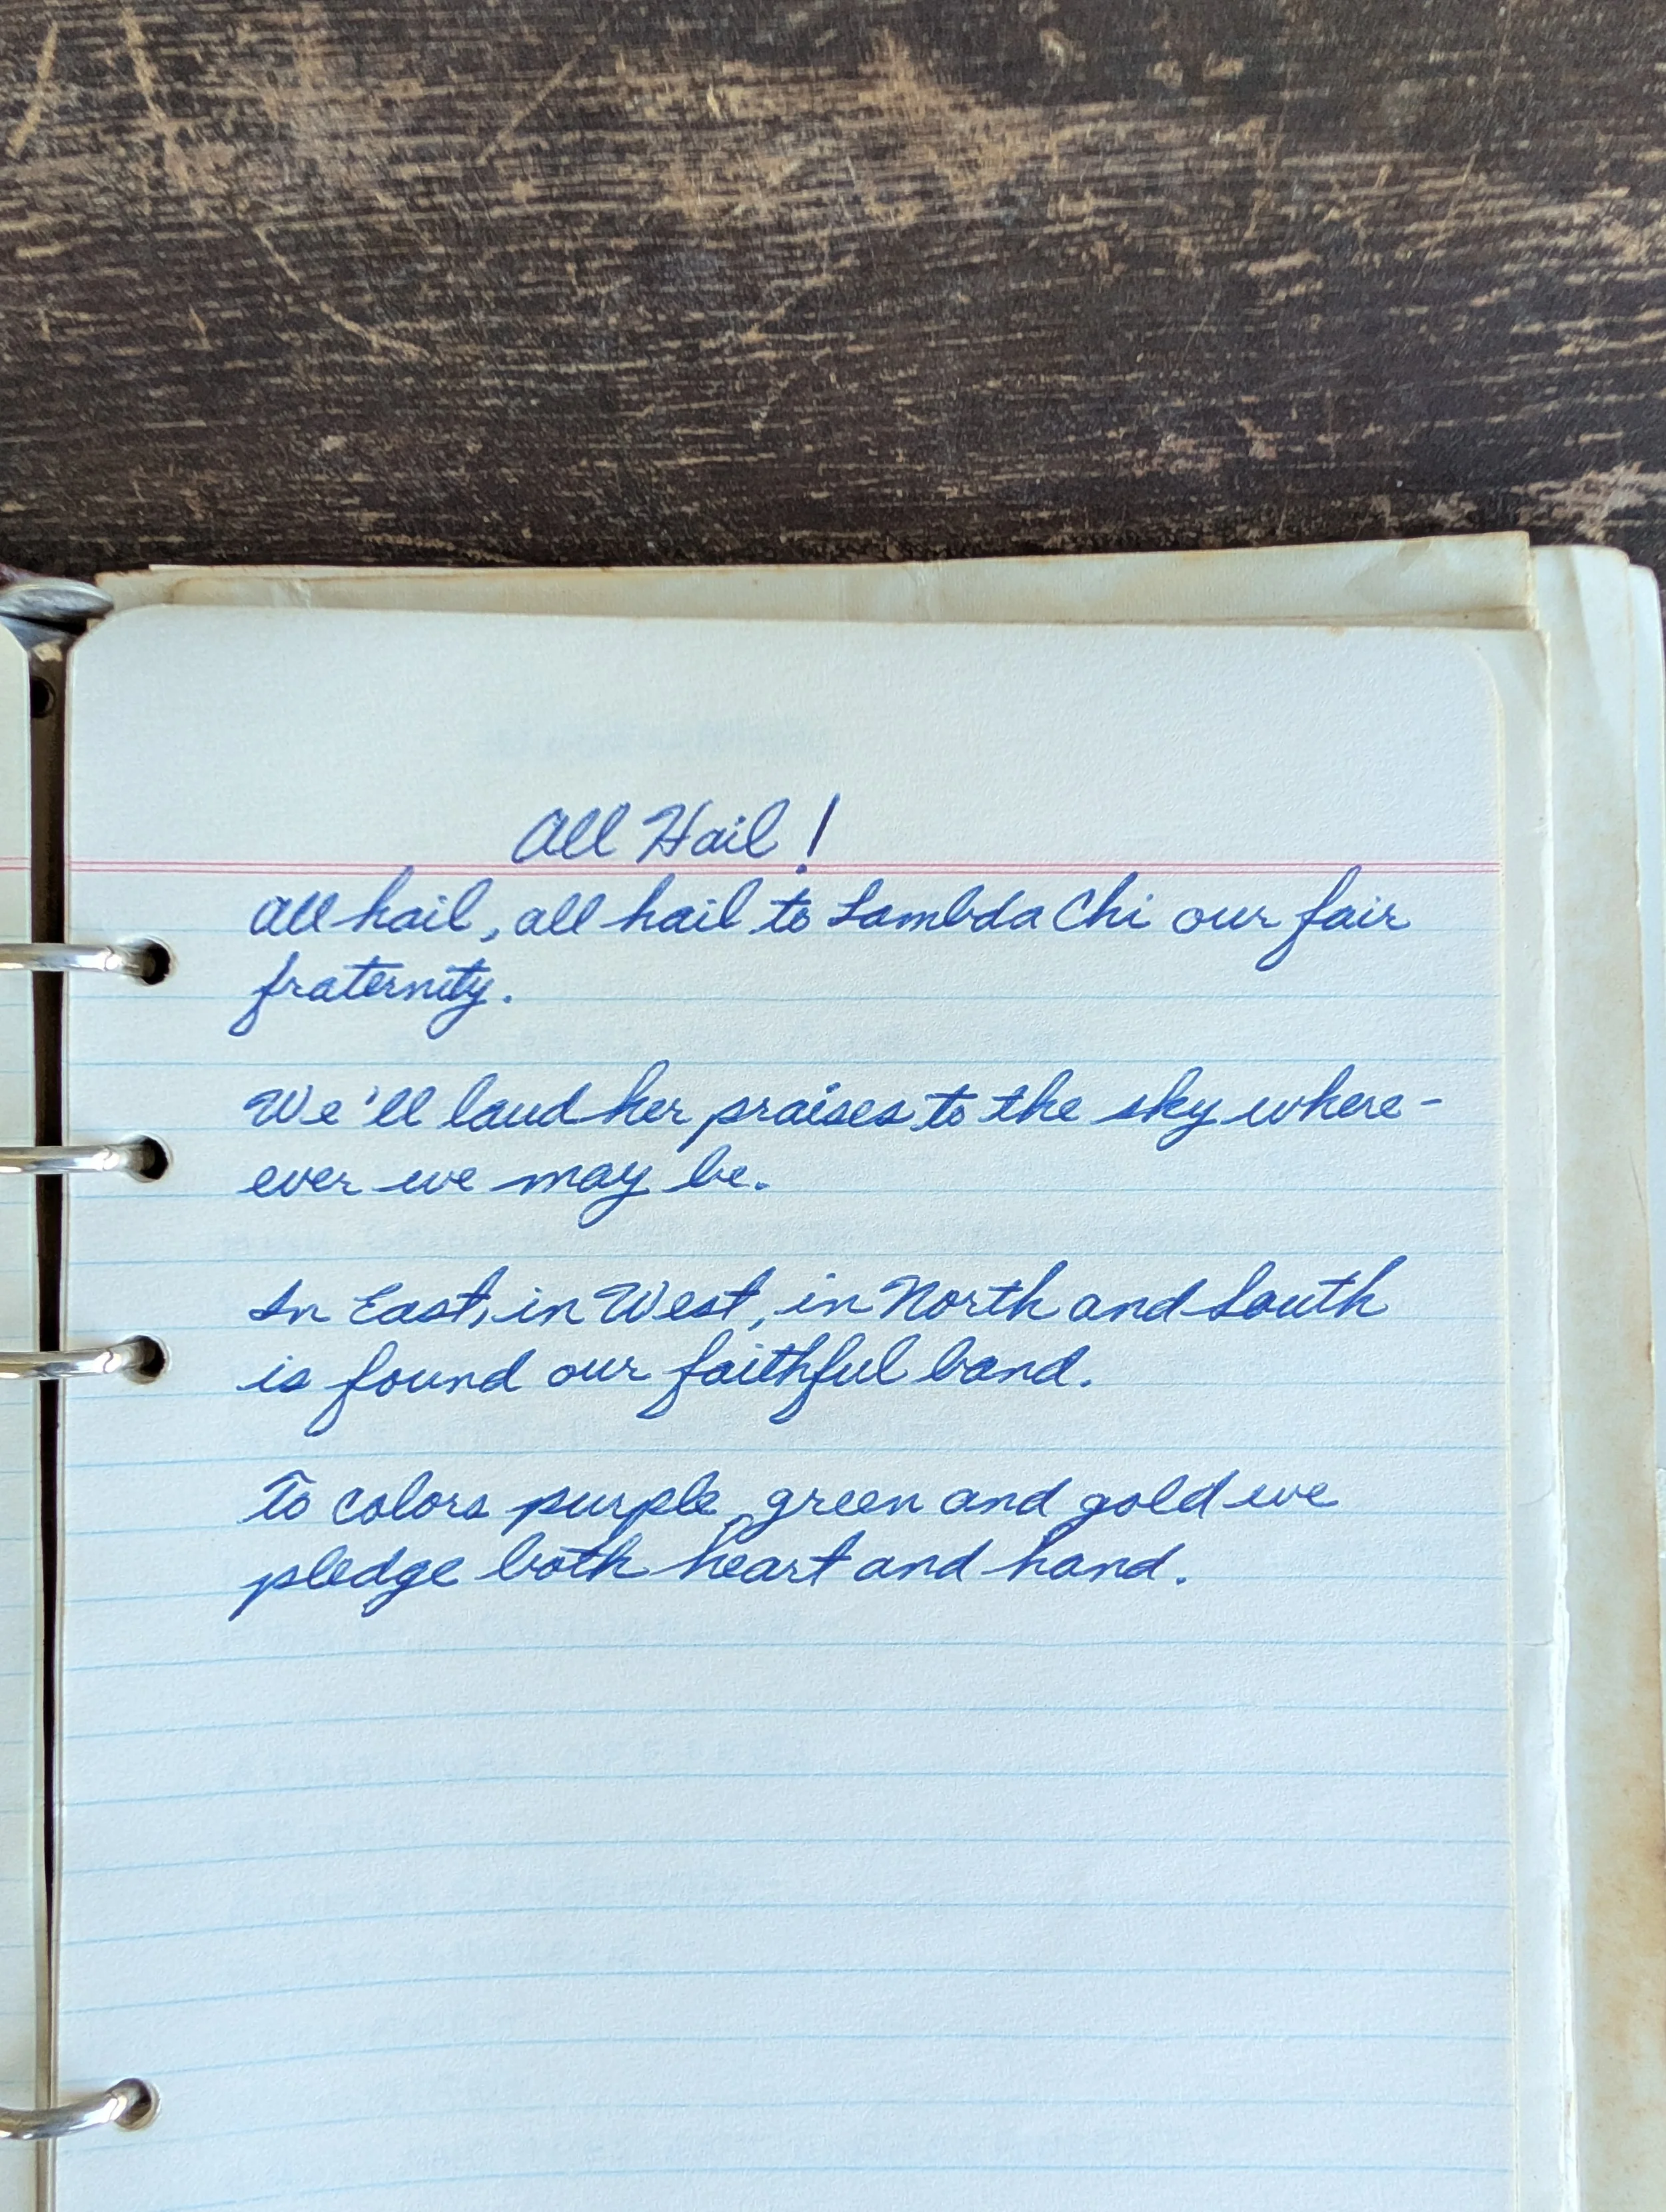 All Hail!
All hail, all hail to Lambda Chi our fair
fraternity.
We'll laud her praises to the sky where-
ever we may be.
In East, in West, in North and South
is found our faithful band.
To colors purple, green and gold we
pledge both heart and hand.